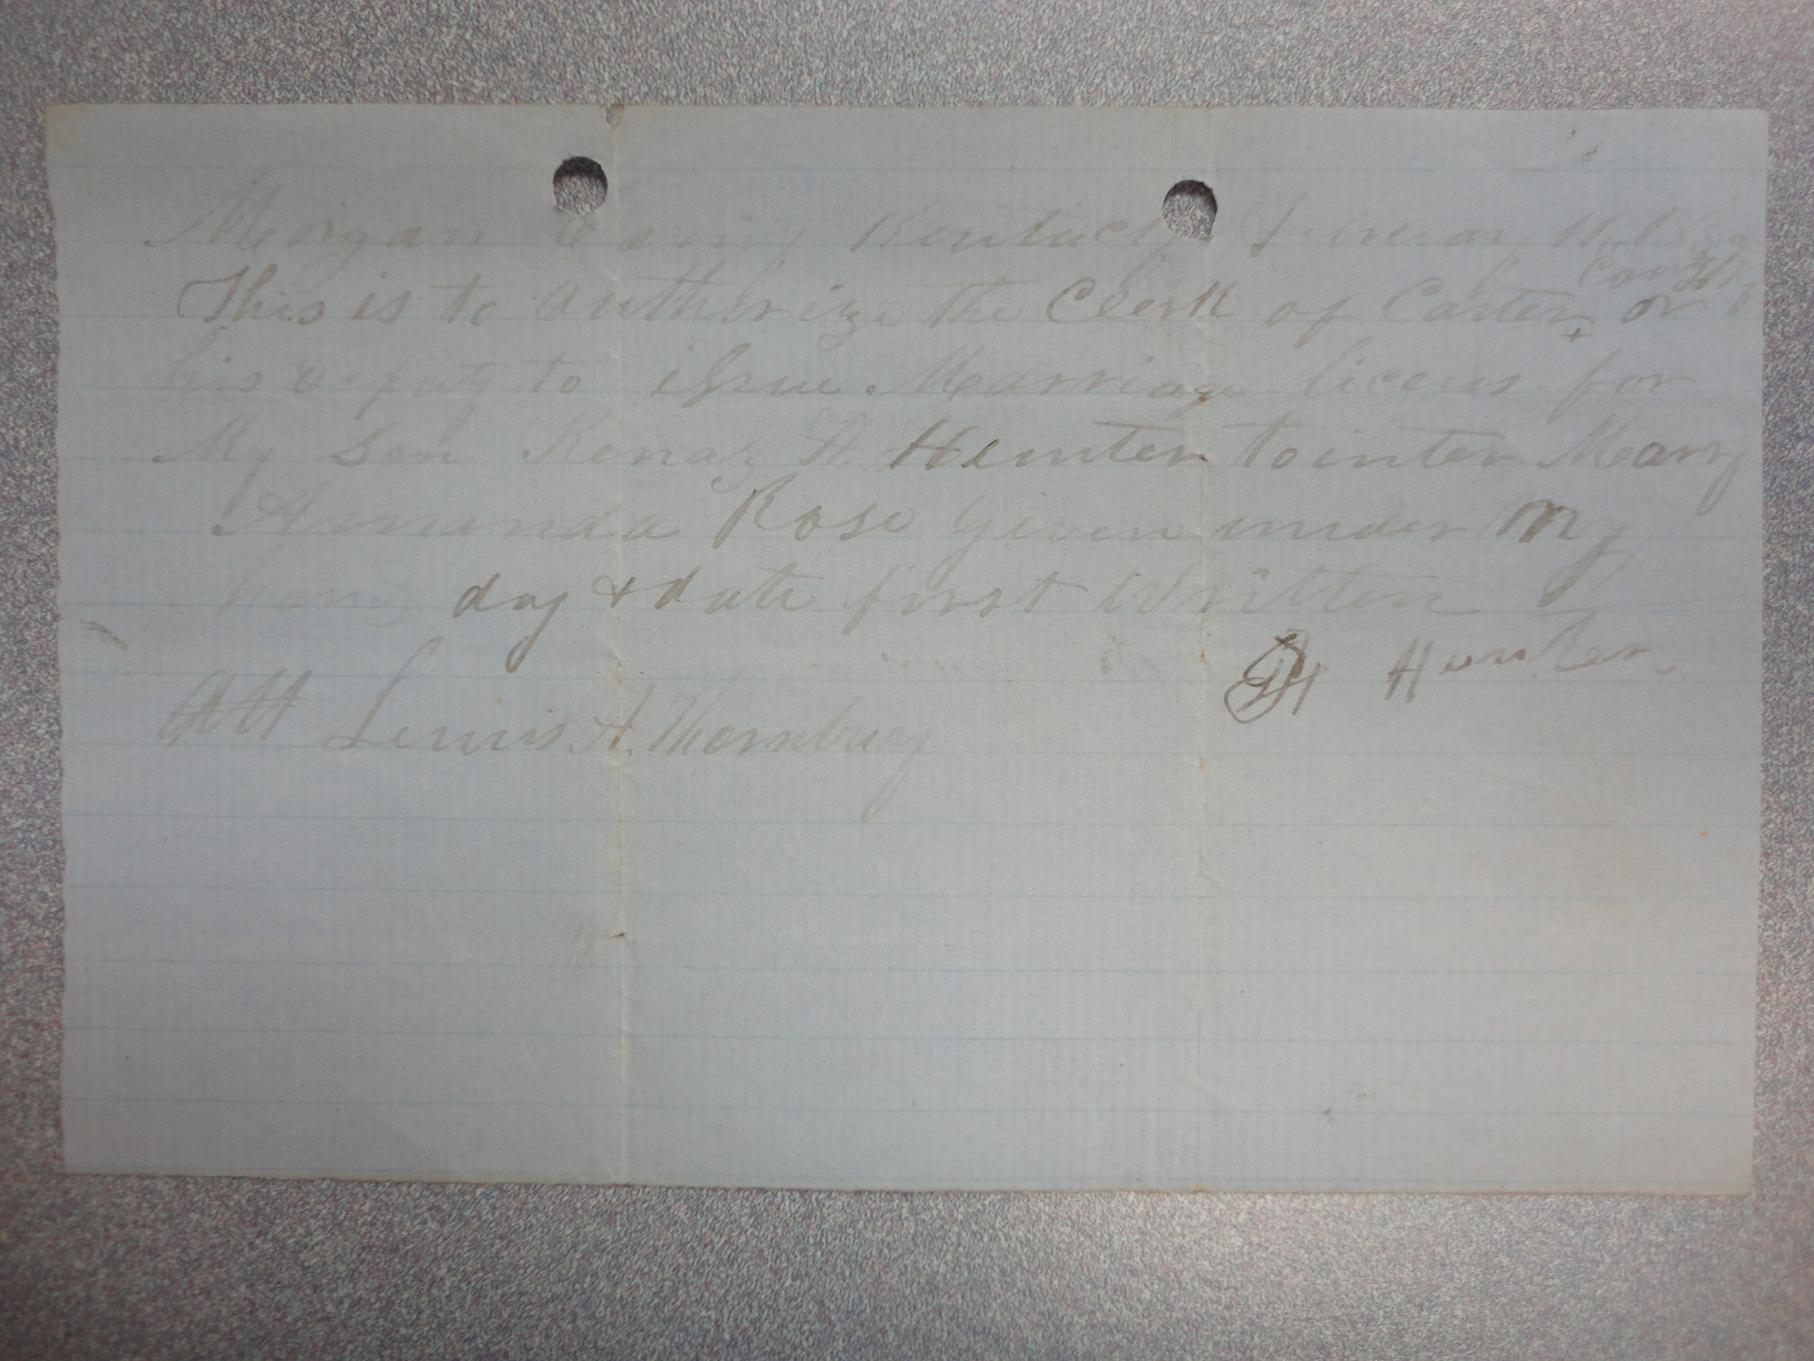 Morgan County Kentucky February
County
This is to authorize the Clerk of Carter or
his deputy to issue Marriage licens for
My Son Kenaz H. Hunter to inter Mary
Amanda Rose Given under my
hand day & date first Written
H Hunter
Att Lewis A. Thornbury